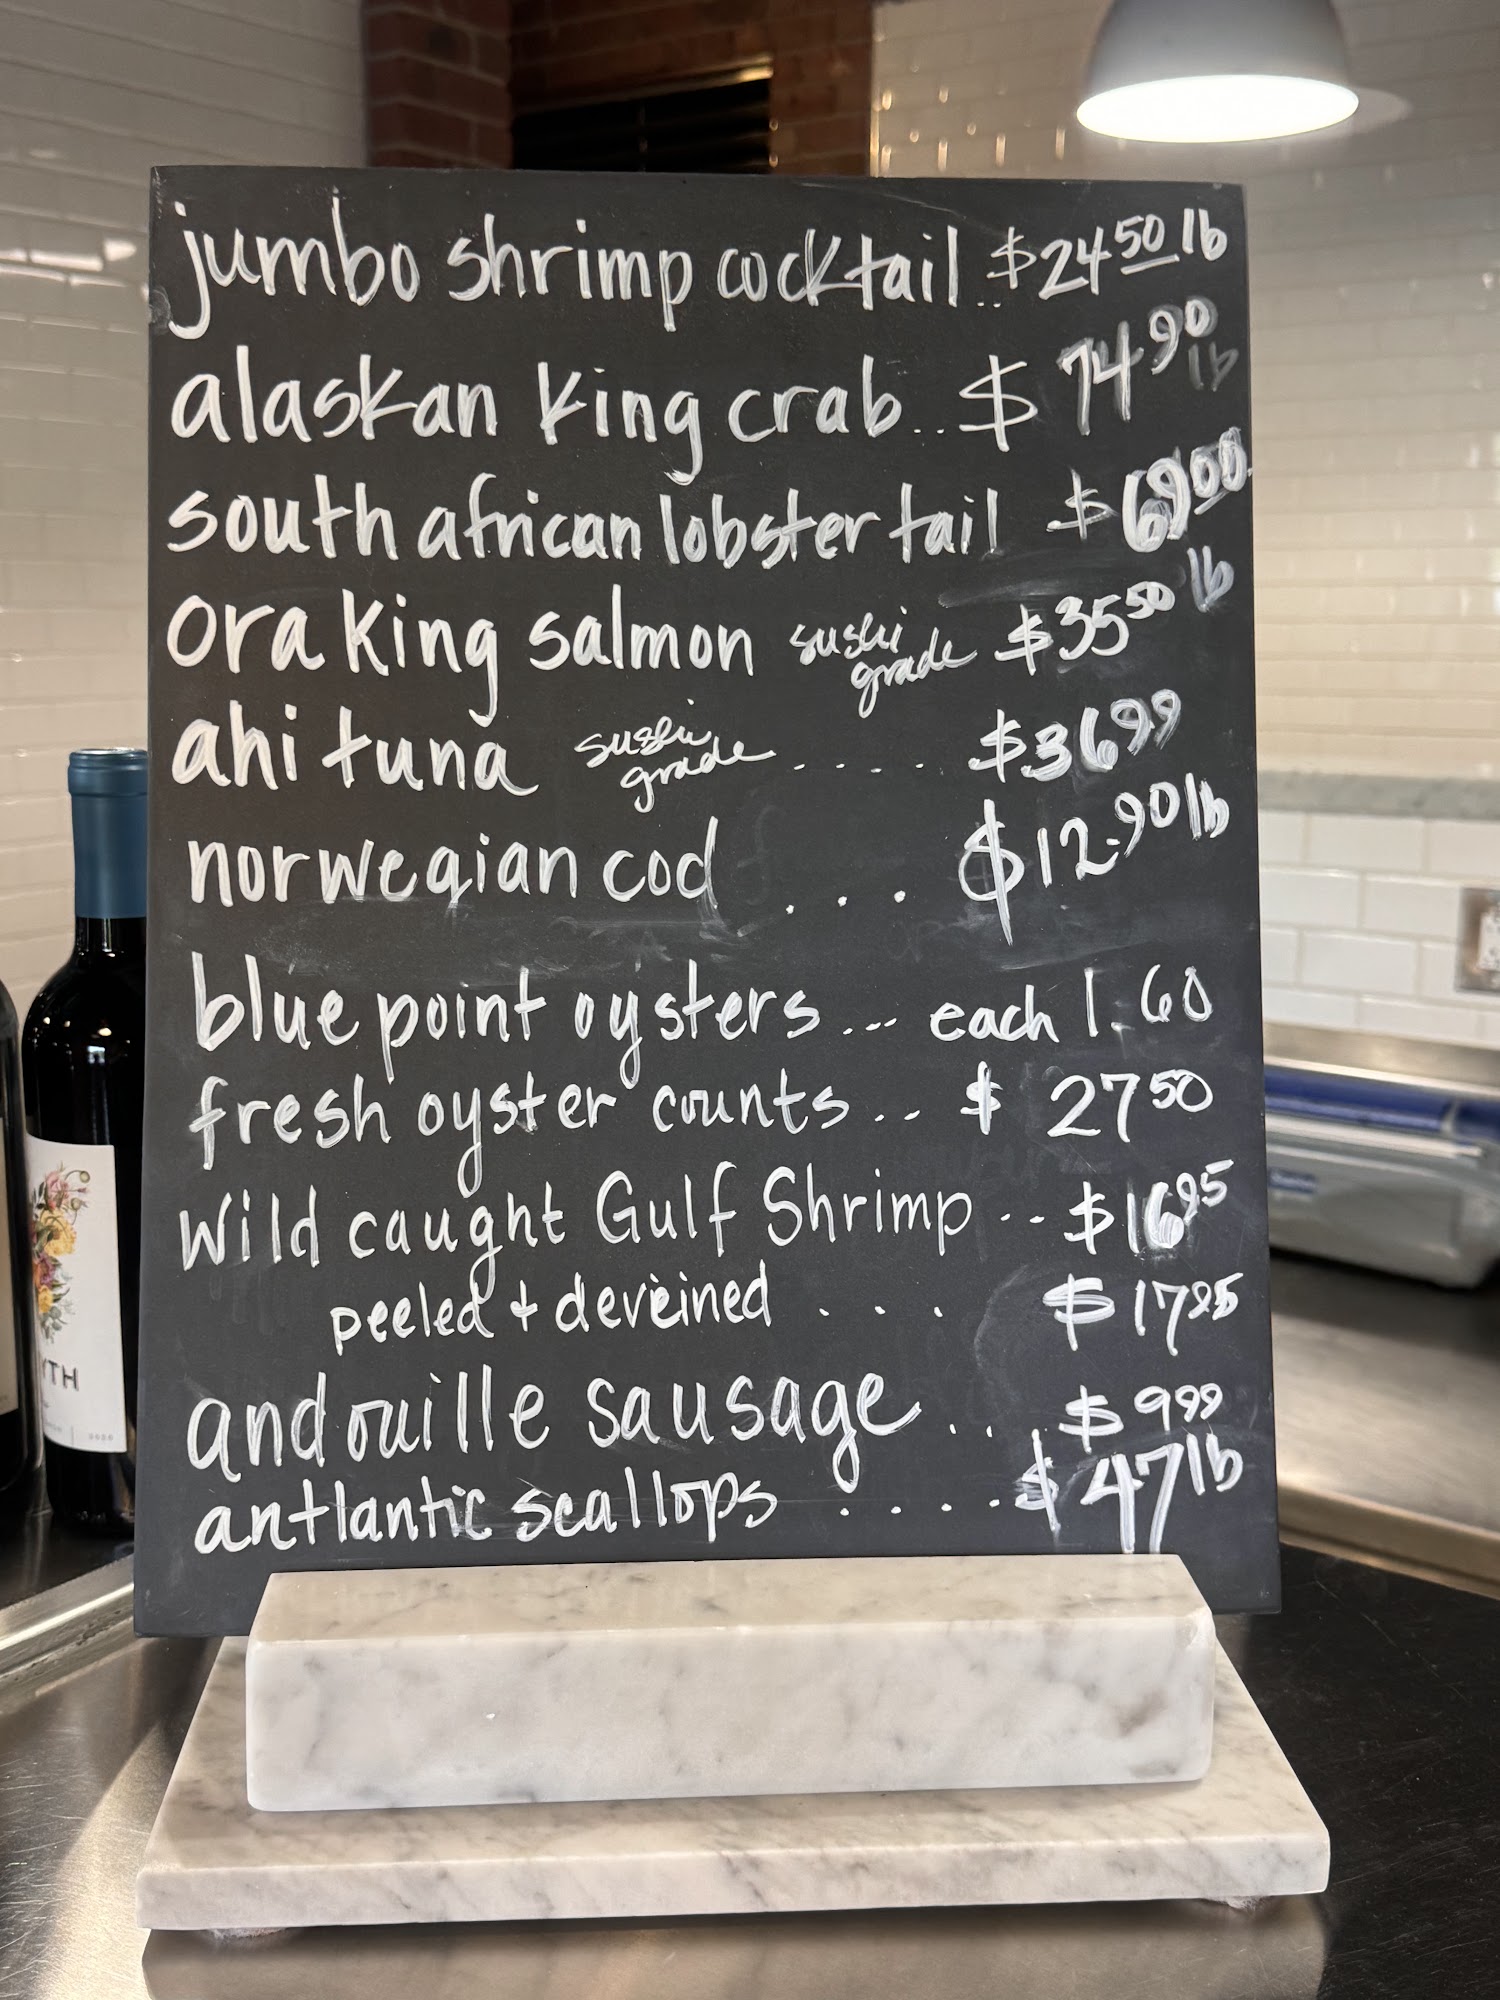 jumbo shrimp cocktail .. $24 50 lb
alaskan king crab .. $ 74.90 lb
south african lobster tail $ 69.00
ora king salmon sushi grade $35 50 lb
ahi tuna sushi grade .... $36 99
norwegian cod ... $12.90 lb
blue point oysters ... each 1.60
fresh oyster counts .. $ 27 50
Wild caught Gulf Shrimp .. $16 95
peeled + deveined ... $17 95
andouille sausage .. $ 9 99
antlantic scallops .... $ 47 lb
YTH